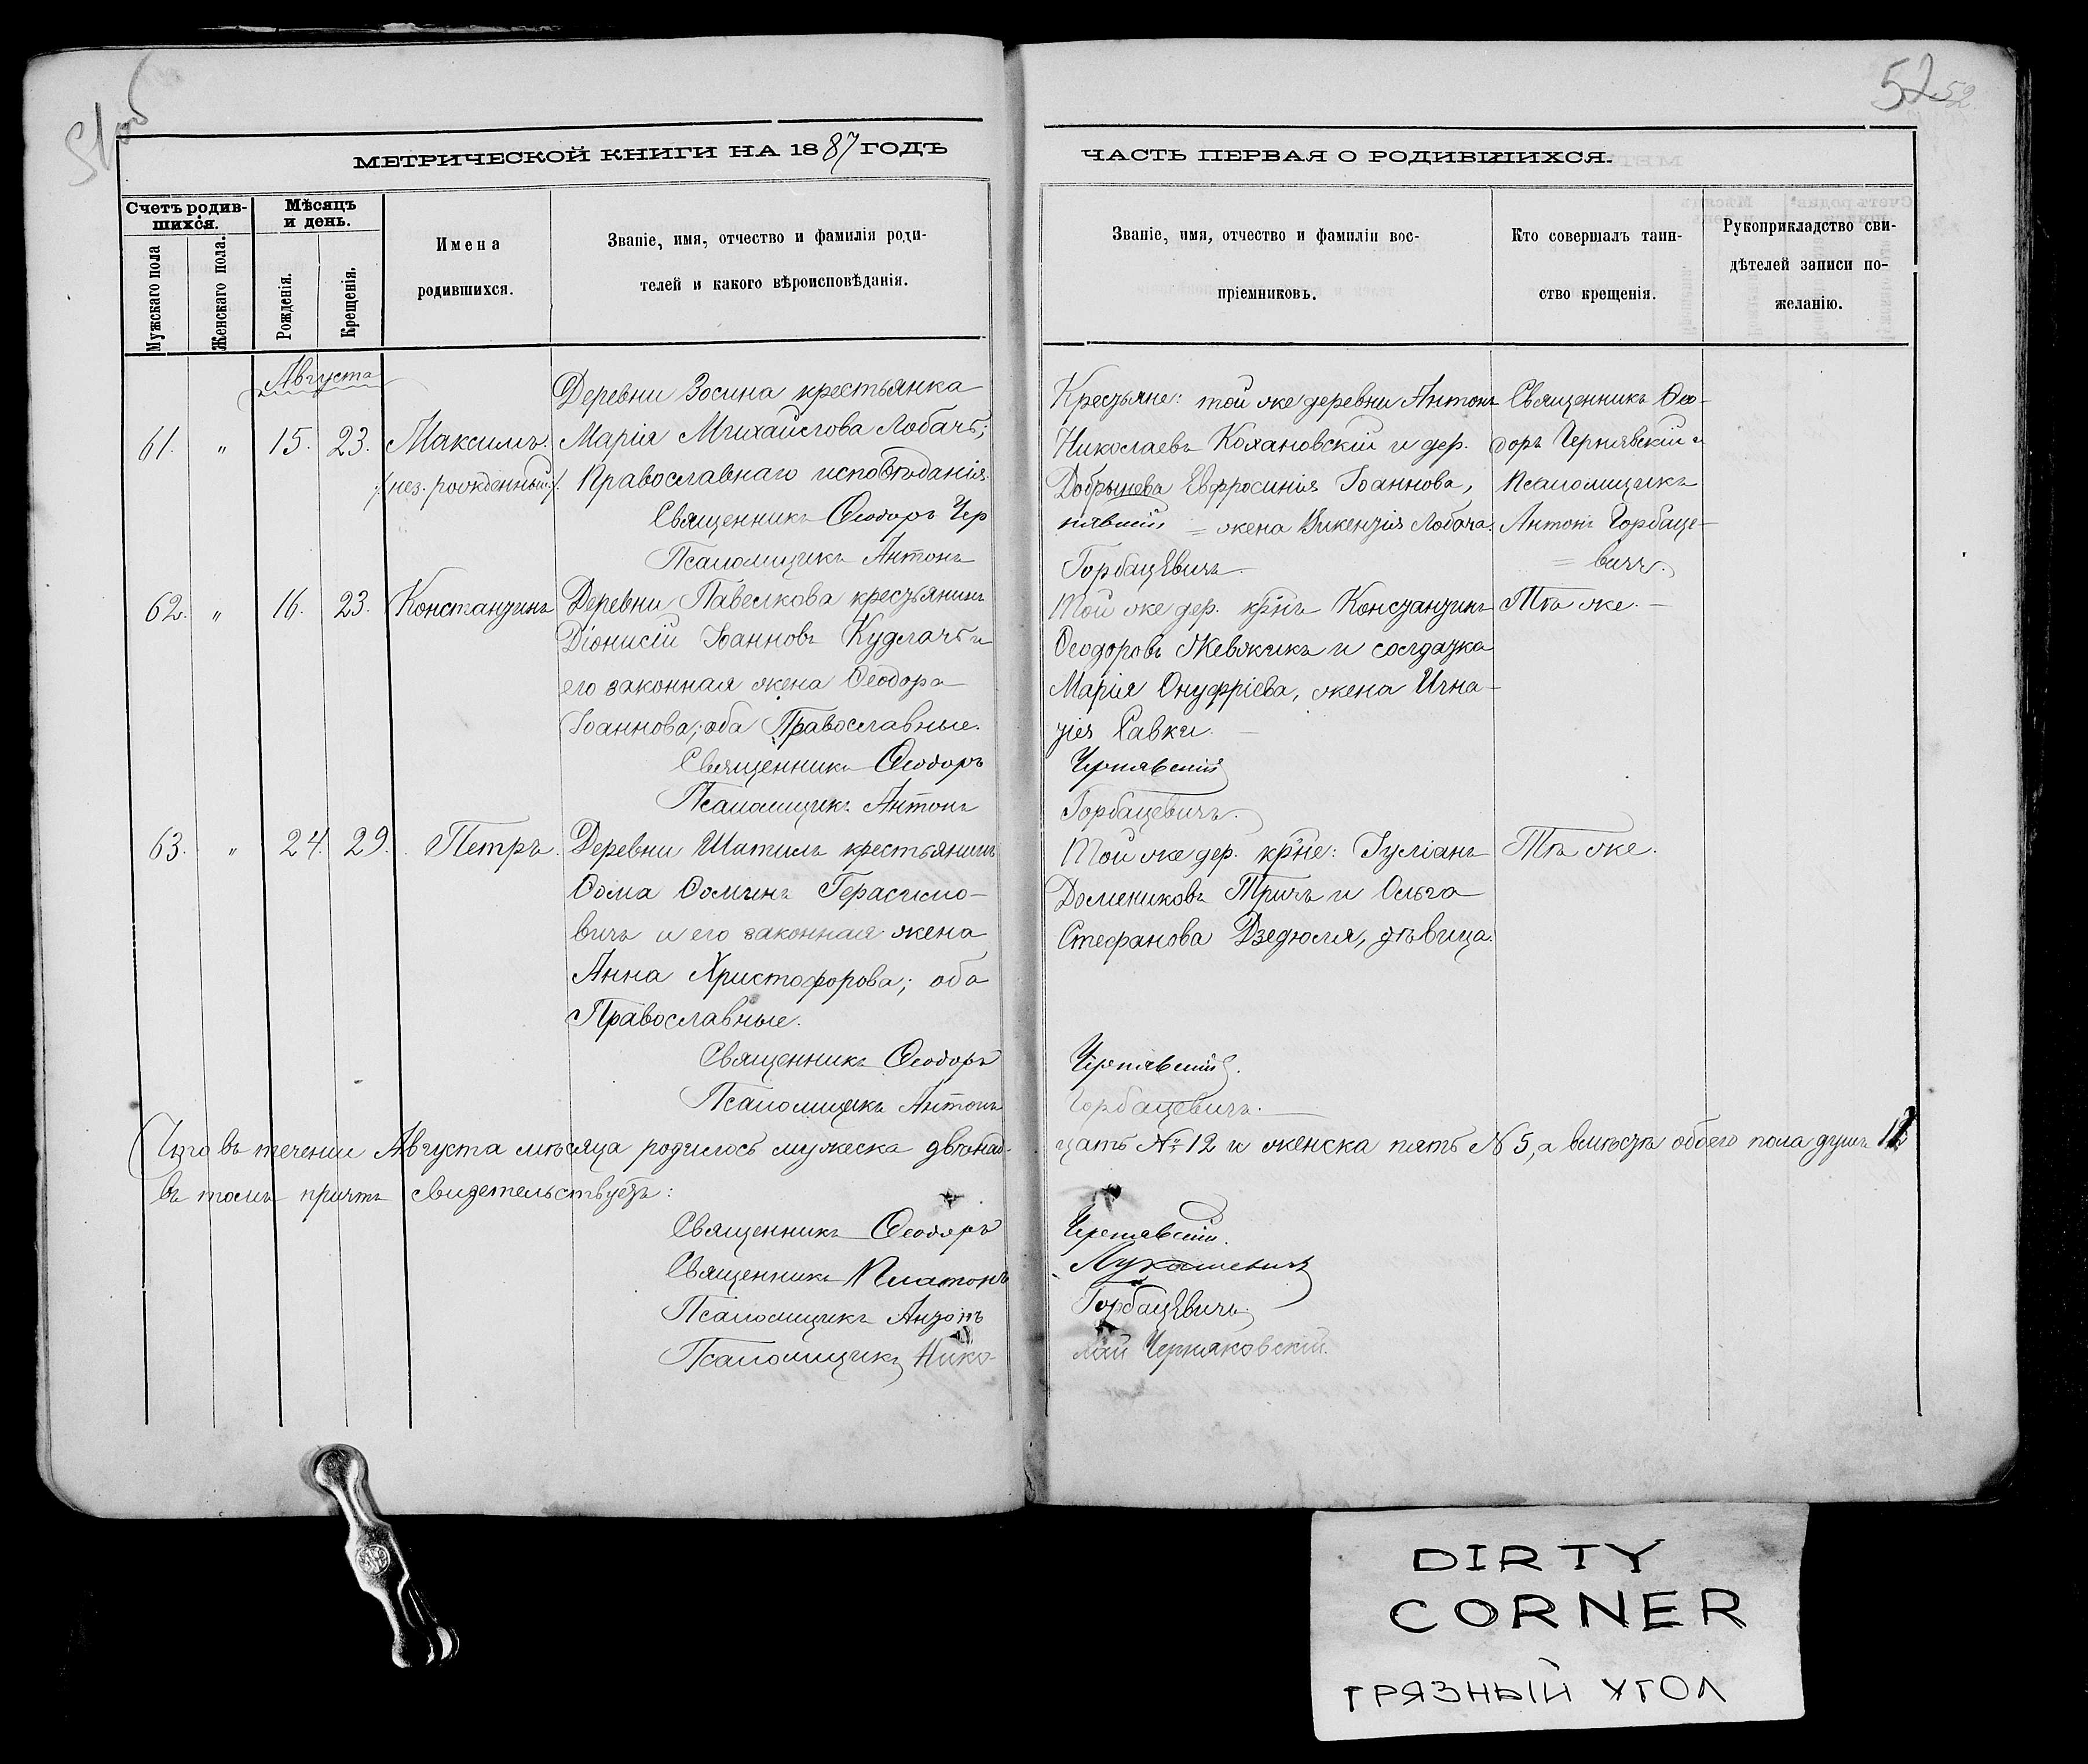 51 об
52 52.
МЕТРИЧЕСКОЙ КНИГИ НА 1887 ГОДЪ
ЧАСТЬ ПЕРВАЯ О РОДИВШИХСЯ.
Счетъ родив-
шихся.
Мужскаго пола
Женскаго пола.
Мѣсяцъ
и день.
Рожденія.
Крещенія.
Имена
родившихся.
Званіе, имя, отчество и фамилія роди-
телей и какого вѣроисповѣданія.
Званіе, имя, отчество и фамиліи вос-
пріемниковъ.
Кто совершалъ таин-
ство крещенія.
Рукоприкладство сви-
дѣтелей записи по-
желанію.
Августа
61. " 15. 23. Максимъ.
/нез. рожденный./
Деревни Зосина крестьянка
Марія Михайлова Лобачъ;
Православнаго исповѣданія.
Священникъ Ѳеодоръ Чер
Псаломщикъ Антонъ
Крестьяне: той же деревни Антонъ
Николаевъ Кохановскій и дер.
Добрынева Евфросинія Іоаннова,
нявскій = жена Викентія Лобача.
Горбацевичъ
Священникъ Ѳео-
доръ Чернявскій и
Псаломщикъ
Антонъ Горбаце-
= вичъ.
62. " 16. 23. Константинъ
Деревни Павелкова крестьянинъ
Діонисій Іоанновъ Кудлачъ и
его законная жена Ѳеодора
Іоаннова; оба Православные.
Священникъ Ѳеодоръ
Псаломщикъ Антонъ
Той же дер. кр-нъ Константинъ
Ѳеодоровъ Жевжикъ и солдатка
Марія Онуфріева, жена Игна-
тія Савки.
Чернявскій
Горбацевичъ.
Тѣ же.
63. " 24. 29. Петръ.
Деревни Шатилъ крестьянинъ
Ѳома Ѳоминъ Герасимо-
вичъ и его законная жена
Анна Христофорова; оба
Православные.
Священникъ Ѳеодоръ
Псаломщикъ Антонъ
Той же дер. кр-не: Іуліанъ
Доменниковъ Тричъ и Ольга
Стефанова Дзедюля, дѣвица.
Чернявскій.
Горбацевичъ.
Тѣ же.
Что въ теченіи Августа мѣсяца родилось мужеска двѣнад-
цать № 12 и женска пять № 5, а вмѣстѣ обоего пола душъ
въ томъ причтъ свидетельствуетъ:
Священникъ Ѳеодоръ Чернявскій.
Священникъ Платонъ Лукашевичъ
Псаломщикъ Антонъ Горбацевичъ
Псаломщикъ Нико-
лай Черняковскій.
DIRTY
CORNER
ГРЯЗНЫЙ УГОЛ